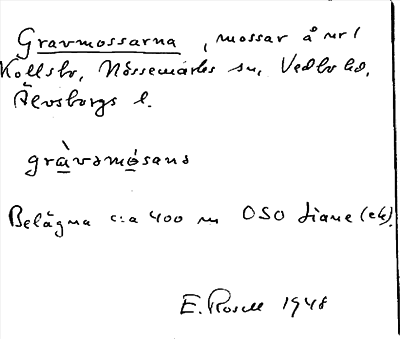 Gravmossarna, mossar å nr 1
Kollsbo, Nössemarks sn, Vedbo hd,
Älvsborgs l.
gràvəmósanə
Belägna c:a 400 m OSO (ek).
E. Rosell 1948